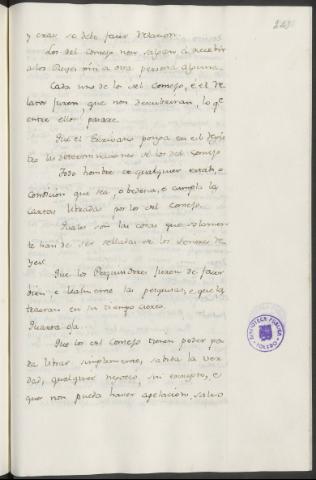 y como se debe facer relacion.
Los del consejo non salgan a recebir
a los Reyes nin a otra persona alguna.
Cada uno de los del consejo, e el Re
lator juren, que non descubriran, lo qe
entre ellos pasare
Que el Escrivano ponga en el
las determinaciones de los del consejo
Todo hombre de qualquier estado, o
condicion que sea, obedezca, e cumpla las
cartas libradas por los del consejo.
Quales son las cosas que solamen
te han de ser selladas de los
Que los Pesquisidores juren de facer
bien, e lealmente las pesquisas, e que las
traeran en su tiempo
Quarta
Que los del consejo tienen poder pa
ra librar simplemente, sabida la ver
dad, qualquier negocio, sin e
que non pueda haver apelacion, salvo